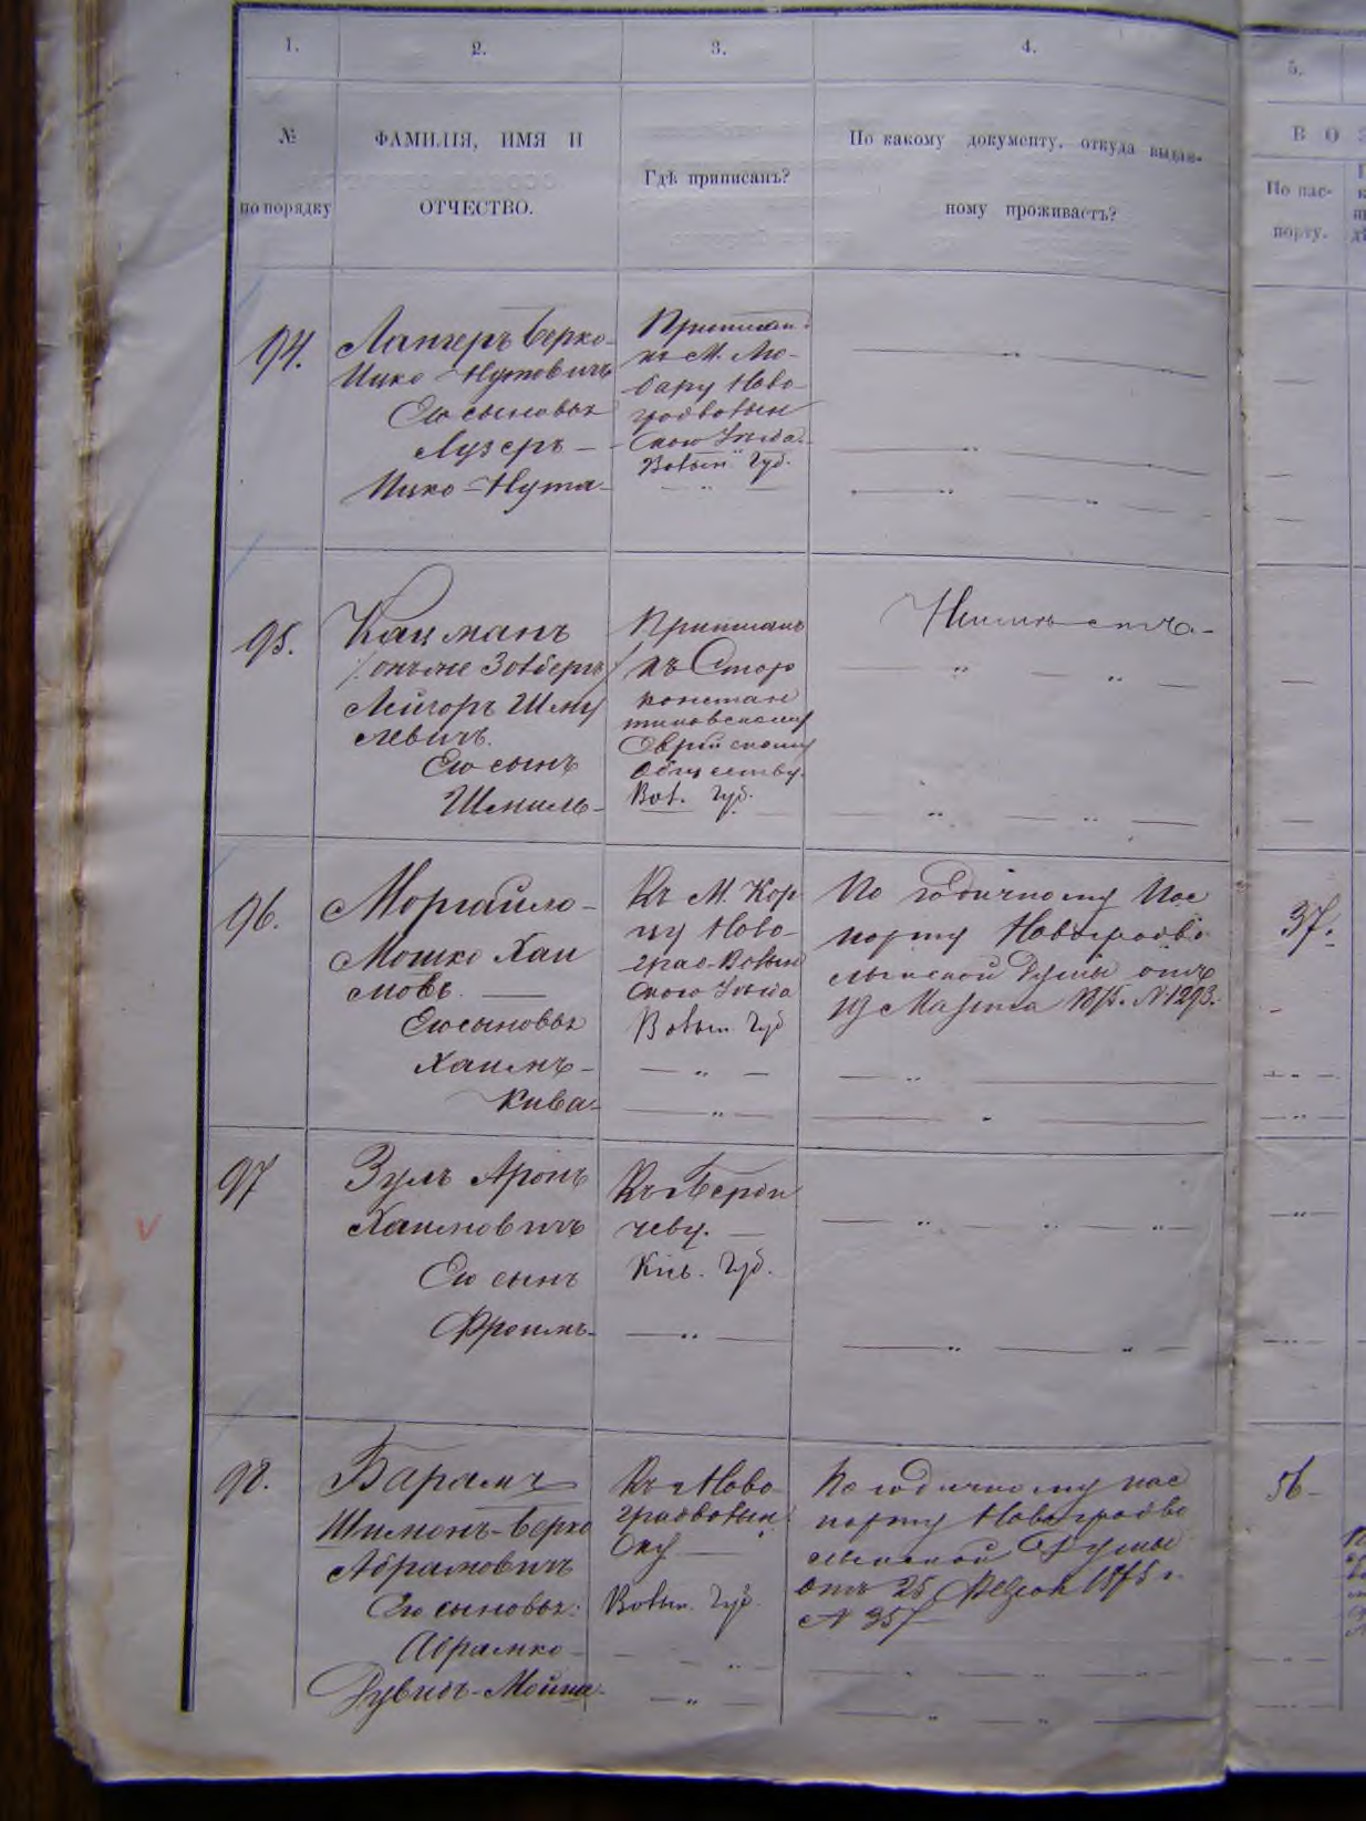 1.
2.
3.
4.
5.
№
по порядку
ФАМИЛІЯ, ИМЯ И
ОТЧЕСТВО.
Гдѣ приписанъ?
По какому документу, откуда выдан-
ному проживаетъ?
В О З
По пас-
порту.
94.
Лангеръ Берко-
Ицко Нутовичъ
Его сыновья
Лузеръ —
Ицко-Нута-
Приписан.
къ М. Лю-
бару Ново-
градволын
скаго Уѣзда.
Волын. Губ.
95.
Кацманъ
онъ же Золбергъ
Лейзоръ Шму
левичъ.
Его сынъ
Шмиль-
Приписанъ
къ Старо
констан
тиновскому
Еврейскому
Обществу.
Вол. Губ.
96.
Моргайло-
Мошко Хаи
мовъ. —
Его сыновья
Хаимъ-
Кива-
Къ М. Кор
цу Ново-
град-Волын
скаго Уѣзда
Волын Губ
По годичному пас
порту Новоградво
лынской Думы отъ
19 Марта 1875. №1293.
37.
97
Зуль Аронъ
Хаимовичъ
Его сынъ
Фроимъ-
Къ Берди
чеву. —
Кіев. Губ.
98.
Барамъ
Шимонъ-Берко
Абрамовичъ
Его сыновья:
Абрамко-
Дувидъ-Мойша-
Къ Ново
градволын
ску —
Волын. Губ.
По годичному пас
порту Новоградво
лынской Думы
отъ 25 1875 г.
№ 357
56-